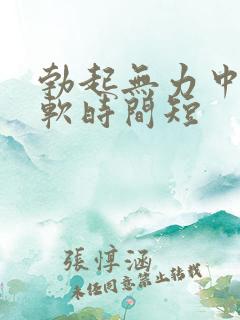 勃起無力中
軟時間短
張惇涵
未经同意禁止转载